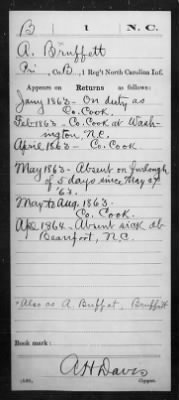 B 1 N. C.
A. Bruffett
Pri, Co. B, 1 Reg't North Carolina Inf.
Appears on Returns as follows:
Jany 1863 - On duty as
Co. Cook.
Feb 1863. Co. Cook at Wash-
ington, N.C.
April 1863 - Co. Cook
May 1863 - Absent on furlough
of 5 days since May 27
'63.
May to Aug. 1863.
Co. Cook.
Apr. 1864 - Absent sick at
Beaufort, N.C.
*Also as A Buffet, Bruffitt
Book mark:
A H Davis
Copyist.